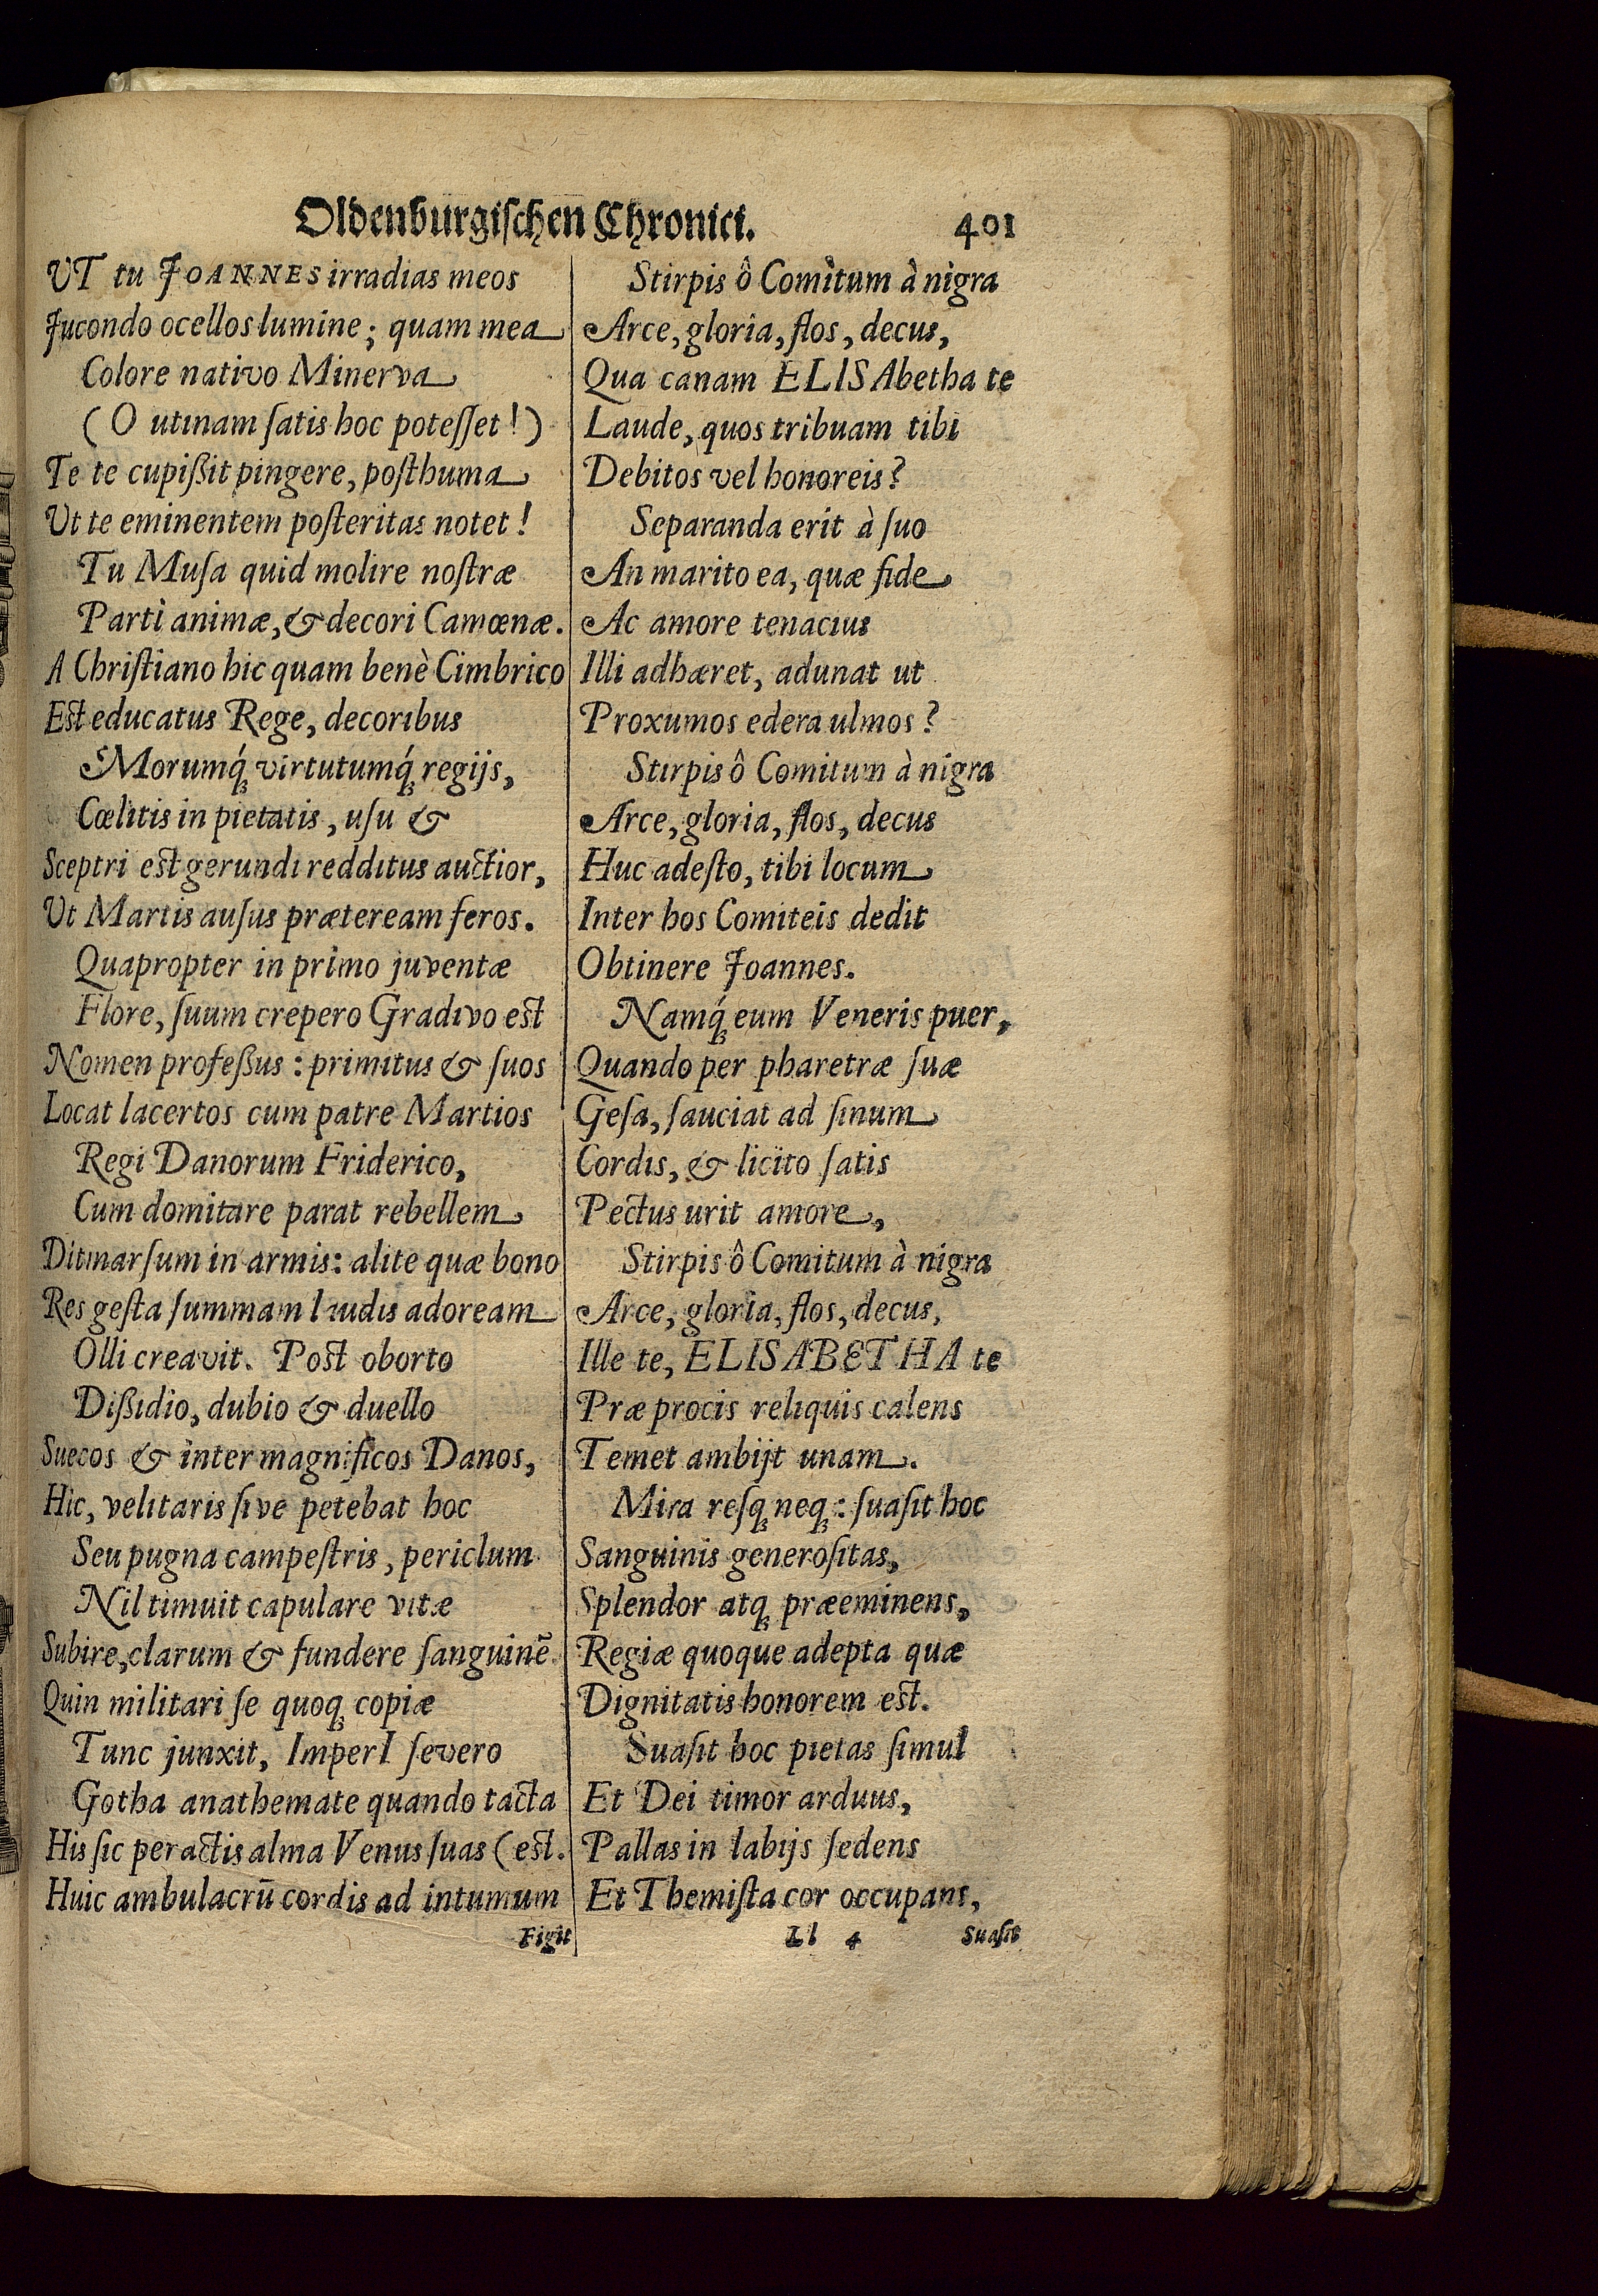 Oldenburgischen Chronici. 401
UT tu JOANNES irradias meos
Jucondo ocellos lumine; quam mea
Colore nativo Minerva
(O utinam ſatis hoc poteſſet!)
Te te cupißit pingere, poſthuma
Ut te eminentem poſteritas notet!
Tu Muſa quid molire noſtræ
Parti animæ, & decori Camœnæ.
A Chriſtiano hic quam benè Cimbrico
Eſt educatus Rege, decoribus
Morumq́; virtutumq́; regijs,
Cœlitis in pietatis, uſu &
Sceptri eſt gerundi redditus auctior,
Ut Martis auſus præteream feros.
Quapropter in primo juventæ
Flore, ſuum crepero Gradivo eſt
Nomen profeßus: primitus & ſuos
Locat lacertos cum patre Martios
Regi Danorum Friderico,
Cum domitare parat rebellem
Ditmarſum in armis: alite quæ bono
Res geſta ſummam laudis adoream
Olli creavit. Poſt oborto
Dißidio, dubio & duello
Suecos & inter magnificos Danos,
Hic, velitaris ſive petebat hoc
Seu pugna campeſtris, periclum
Nil timuit capulare vitæ
Subire, clarum & fundere ſanguinē
Quin militari ſe quoq; copiæ
Tunc junxit, ImperI ſevero
Gotha anathemate quando tacta
His ſic peractis alma Venus ſuas (eſt.
Huic ambulacrū cordis ad intumum
Figit
Stirpis ô Comitum à nigra
Arce, gloria, flos, decus,
Qua canam ELISAbetha te
Laude, quos tribuam tibi
Debitos vel honoreis?
Separanda erit à ſuo
An marito ea, quæ fide
Ac amore tenacius
Illi adhæret, adunat ut
Proxumos edera ulmos?
Stirpis ô Comitum à nigra
Arce, gloria, flos, decus
Huc adeſto, tibi locum
Inter hos Comiteis dedit
Obtinere Joannes.
Namq́; eum Veneris puer,
Quando per pharetræ ſuæ
Geſa, ſauciat ad ſinum
Cordis, & licito ſatis
Pectus urit amore,
Stirpis ô Comitum à nigra
Arce, gloria, flos, decus,
Ille te, ELISABETHA te
Præ procis reliquis calens
Temet ambijt unam.
Mira reſq; neq;: ſuaſit hoc
Sanguinis generoſitas,
Splendor atq; præeminens,
Regiæ quoque adepta quæ
Dignitatis honorem eſt.
Suaſit hoc pietas ſimul
Et Dei timor arduus,
Pallas in labijs ſedens
Et Themiſta cor occupans,
Ll 4 Suaſit